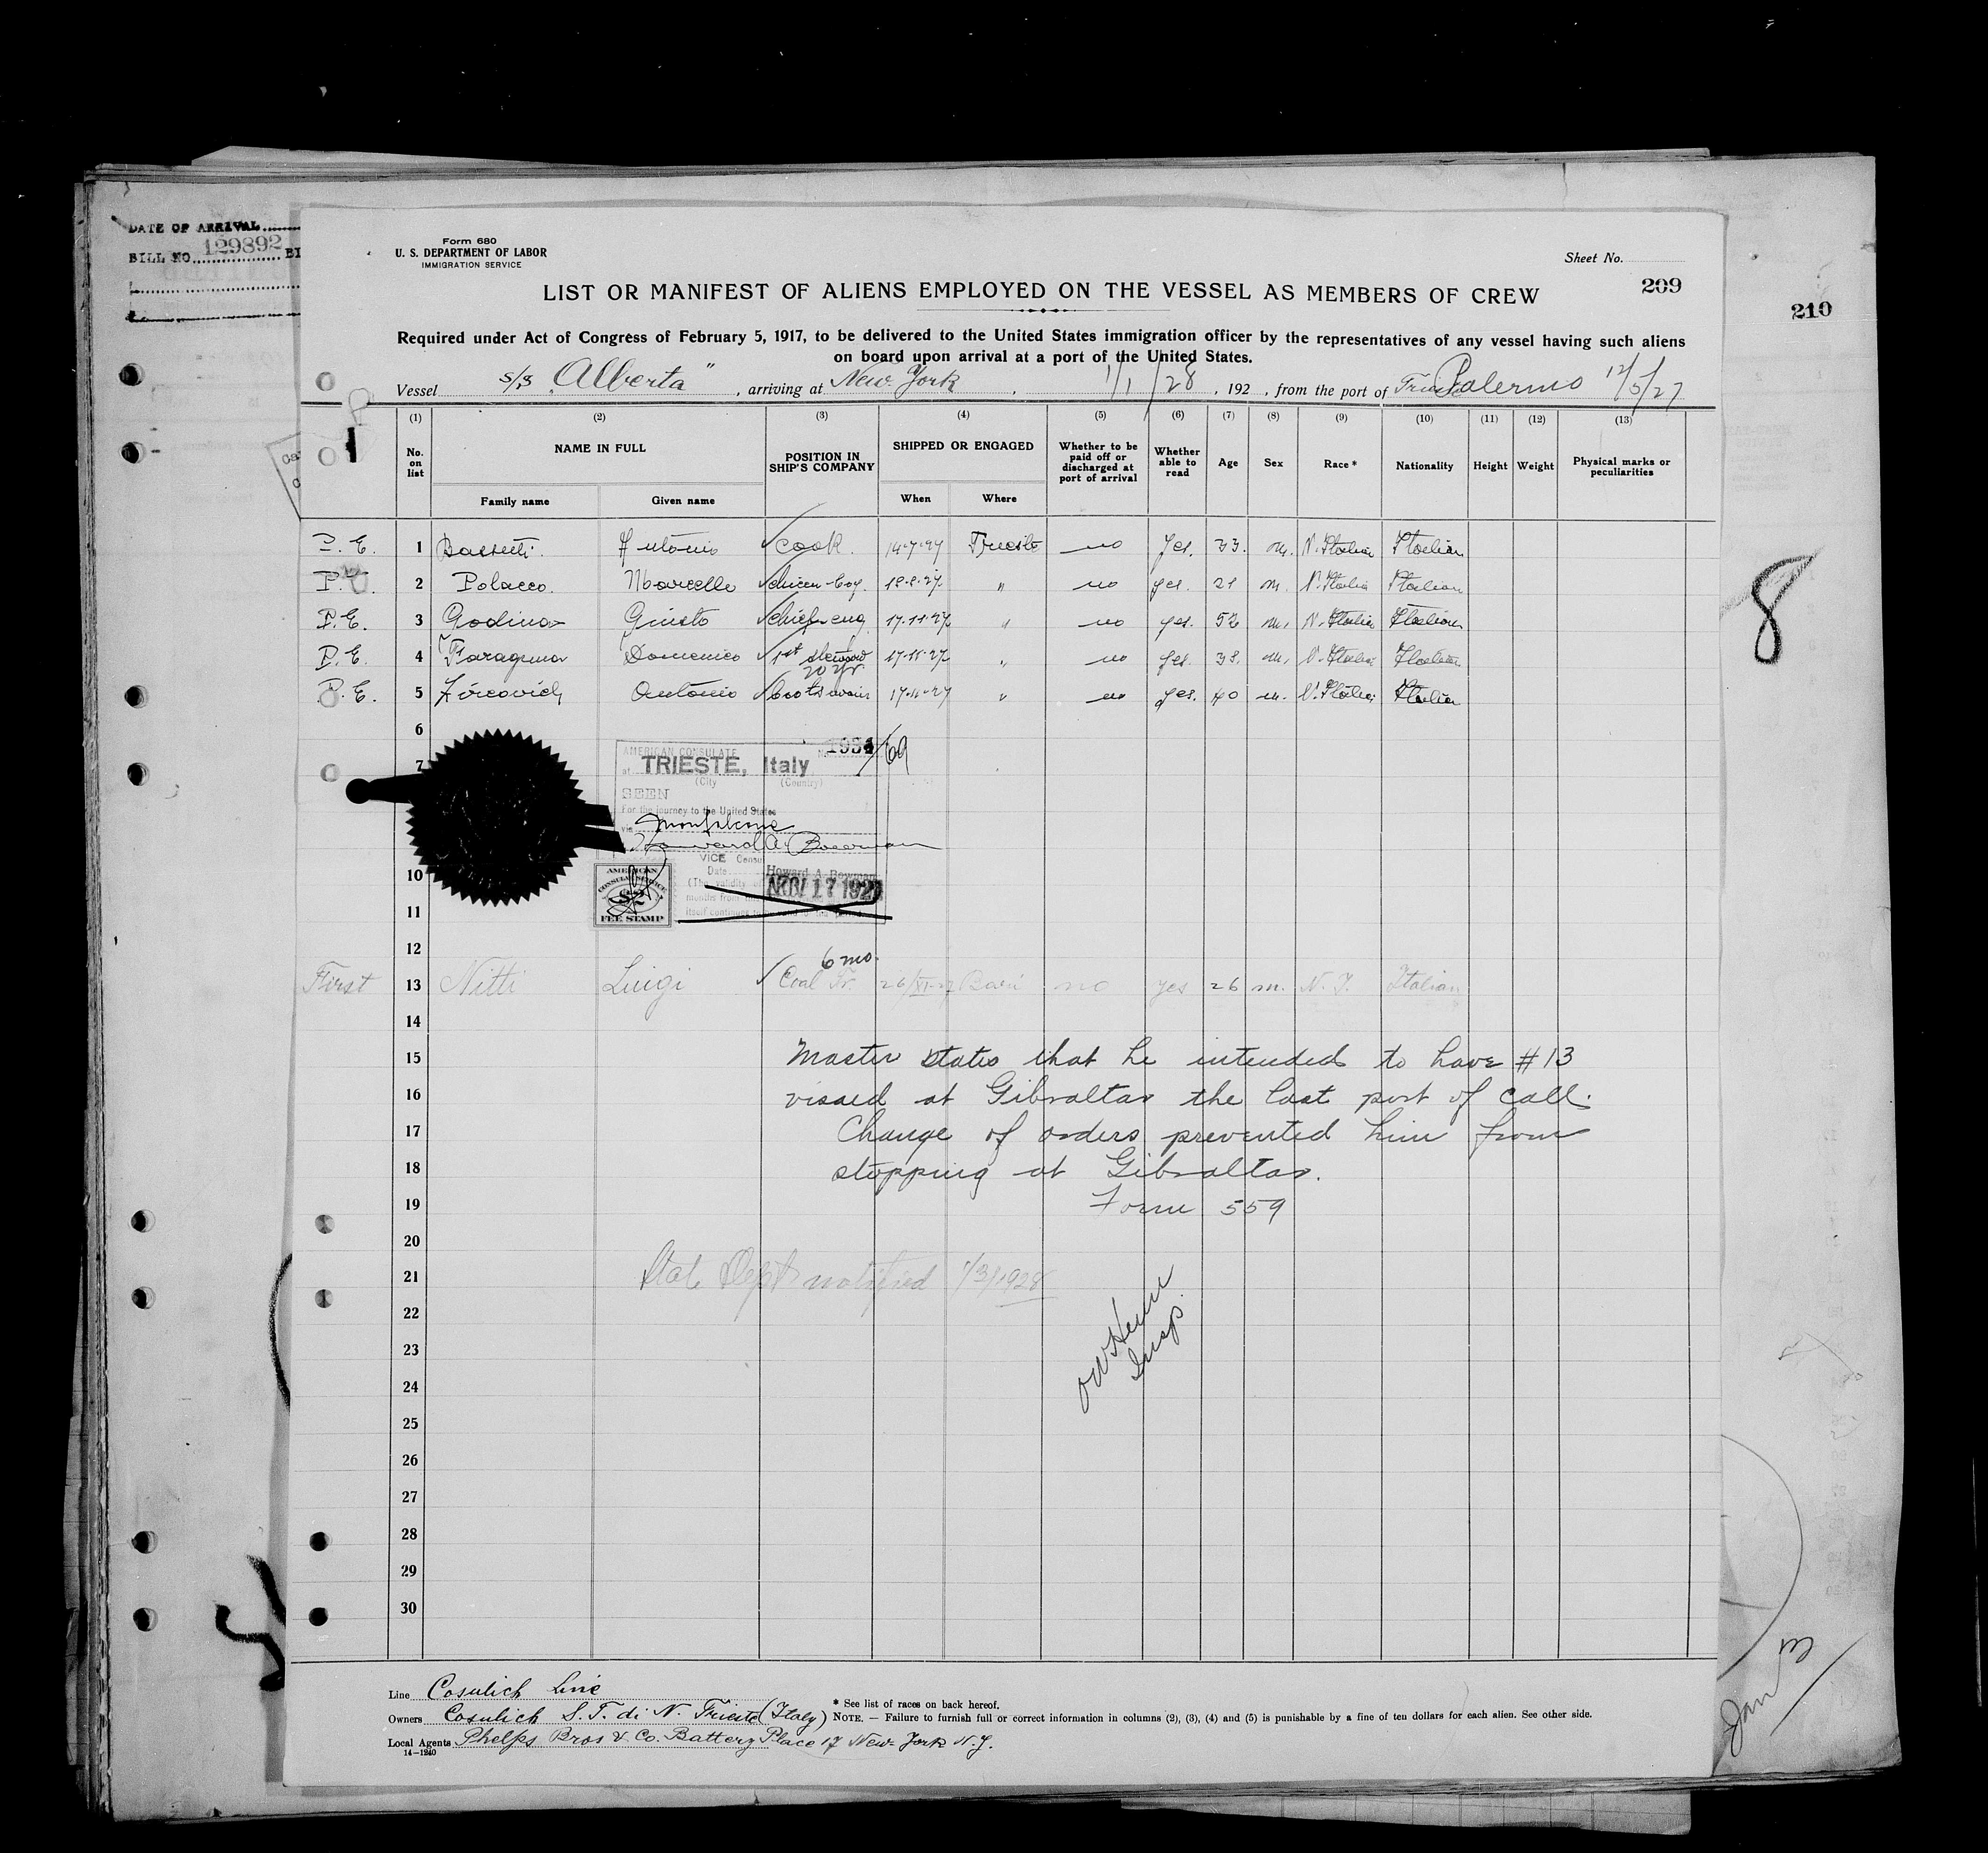 DATE OF ARRIVAL
BILL NO. 129892
Form 680
U. S. DEPARTMENT OF LABOR
IMMIGRATION SERVICE
Sheet No.
209
210
LIST OR MANIFEST OF ALIENS EMPLOYED ON THE VESSEL AS MEMBERS OF CREW
Required under Act of Congress of February 5, 1917, to be delivered to the United States immigration officer by the representatives of any vessel having such aliens
on board upon arrival at a port of the United States.
Vessel S/S "Alberta", arriving at New York, 1/1/28, 192 , from the port of Palermo 12/5/27
(1) (2) (3) (4) (5) (6) (7) (8) (9) (10) (11) (12) (13)
No. on list NAME IN FULL Family name Given name POSITION IN SHIP'S COMPANY SHIPPED OR ENGAGED When Where Whether to be paid off or discharged at port of arrival Whether able to read Age Sex Race * Nationality Height Weight Physical marks or peculiarities
P. E. 1 Antonio cook. 14-7-27 Trieste no yes. 33. m. N. Italian Italian
2 Polacco. Marcello 21 m. N. Italian Italian
P. E. 3 Godina Giusto chief eng. 17-11-27 " no yes. 52 m. N. Italian Italian
P. E. 4 Faraguna Domenico 1st steward 17-11-27 " no yes. 38. m. N. Italian Italian
20 yr
P. E. 5 Zircovich Antonio boatswain 17-11-27 " no yes. 40 m. N. Italian Italian
6
AMERICAN CONSULATE
7 at TRIESTE, Italy
(City (Country)
SEEN
For the journey to the United States
via Monfalcone
Howard A. Bowman
VICE Consul
Howard A. Bowman
Date NOV 17 1927
10 AMERICAN CONSULAR SERVICE
$2
11 FEE STAMP
12
6 mo.
First 13 Nitti Luigi Coal Tr. 26/XI-27 Bari no yes 26 m. N. I. Italian
14
15 Master states that he intended to have #13
16 visaed at Gibraltar the last port of call.
17 Change of orders prevented him from
18 stopping at Gibraltar.
19 Form 559
20
21 State Dept notified 1/3/1928
22
23 Insp.
24
25
26
27
28
29
30
8
Jan 3
Line Cosulich Line
* See list of races on back hereof.
Owners Cosulich S. T. di N. Trieste (Italy) NOTE. — Failure to furnish full or correct information in columns (2), (3), (4) and (5) is punishable by a fine of ten dollars for each alien. See other side.
Local Agents Phelps Bros & Co. Battery Place 17 New York N.Y.
14—1240